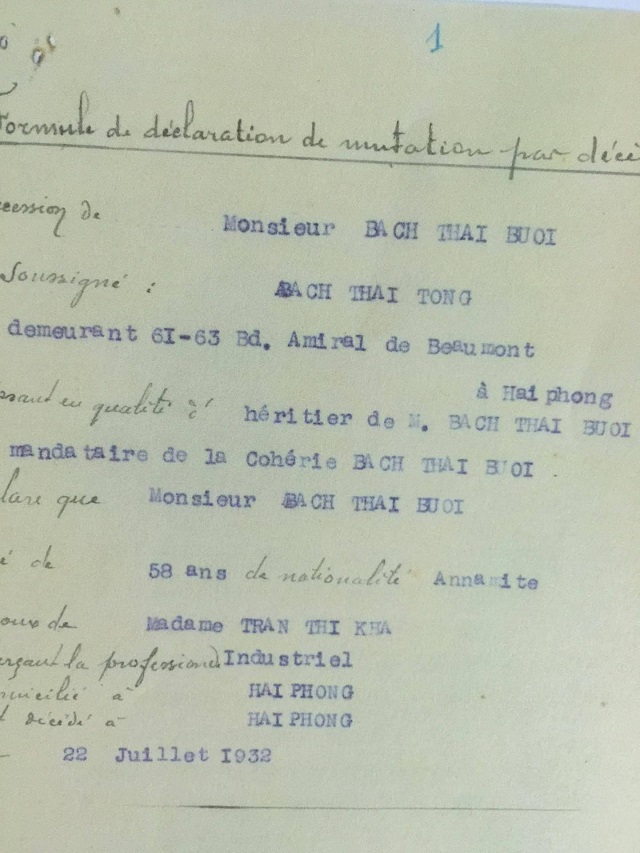 1
Formule de déclaration de mutation par décè
cession de Monsieur BACH THAI BUOI
Soussigné : BACH THAI TONG
demeurant 6I-63 Bd. Amiral de Beaumont
à Haiphong
ssant en qualité d' héritier de M. BACH THAI BUOI
mandataire de la Cohérie BACH THAI BUOI .
lare que Monsieur BACH THAI BUOI
é de 58 ans de nationalité Annamite
oux de Madame TRAN THI KHA
erçant la profession d Industriel
micilié à HAIPHONG
t décédé à HAIPHONG
22 Juillet I932